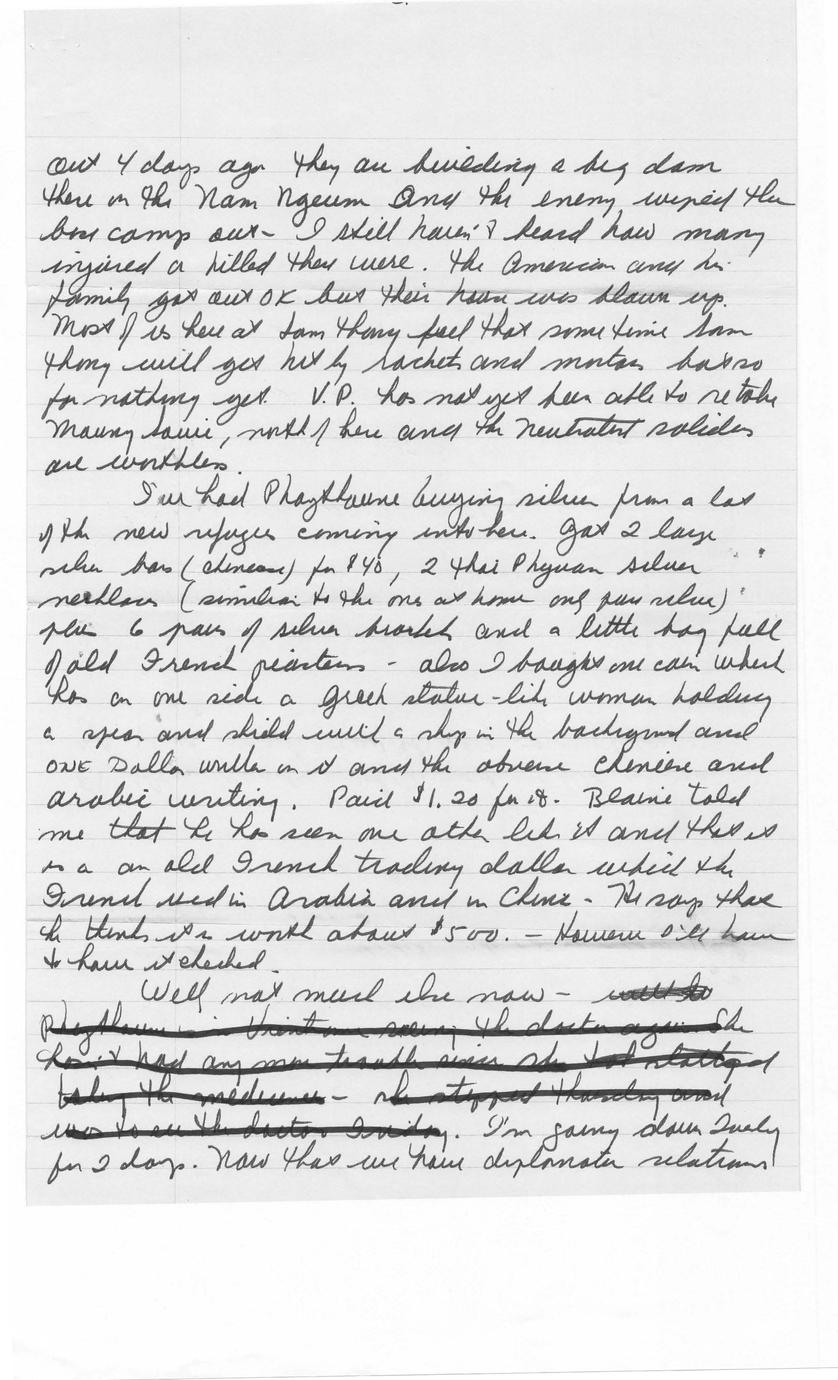 out 4 days ago they are building a big dam
there on the Nam Ngeum And the enemy wiped the
base camp out - I still haven't heard how many
injured or killed there were. the American and his
family got out OK but their house was blown up.
Most of us here at Sam thong feel that some time Sam
thong will get hit by rockets and mortars but so
far nothing yet. V.P. has not yet been able to retake
Moung Souie, north of here and the Neutralist soliders
are worthless.
I've had Phaythoune buying silver from a lot
of the new refugees coming into here. Got 2 large
silver bars (chinese) for $40, 2 thai Phyuan silver
necklaces (similiar to the one at home only pure silver)
plus 6 pairs of silver bracelets and a little bag full
of old French piasters - also I bought one coin which
has on one side a Greek statue-like woman holding
a spear and shield with a ship in the background and
ONE Dollar written on it and the obverse chinese and
arabic writing. Paid $1.20 for it. Blaine told
me that he has seen one other like it and that it
is a an old French trading dollar which the
French used in Arabia and in China - He says that
he thinks it is worth about $500. - However I'll have
to have it checked.
Well not much else now -
Phaythoune is in Vientiane seeing the doctor again She
hasn't had any more trouble since she started
taking the medicine - she stopped thursday and
was to see the doctor Friday. I'm going down Tuesday
for 2 days. Now that we have diplomatic relations